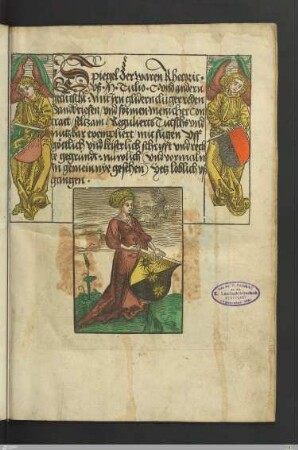 Spiegel der waren Rhetoric.
vß. M. Tulio. C. vnd andern
getütscht: Mit jrn glidern clůger reden
Sandbriefen vnd formen menicher con
tract seltzam Regulierts Tütschs vnd
nutzbar exempliert mit fůgen vff
göttlich vnd keiserlich schrifft vnd rech
te gegründt: nuwlich vnd vormaln
in gemein nye gesehen yetz loblich vß
gangen.